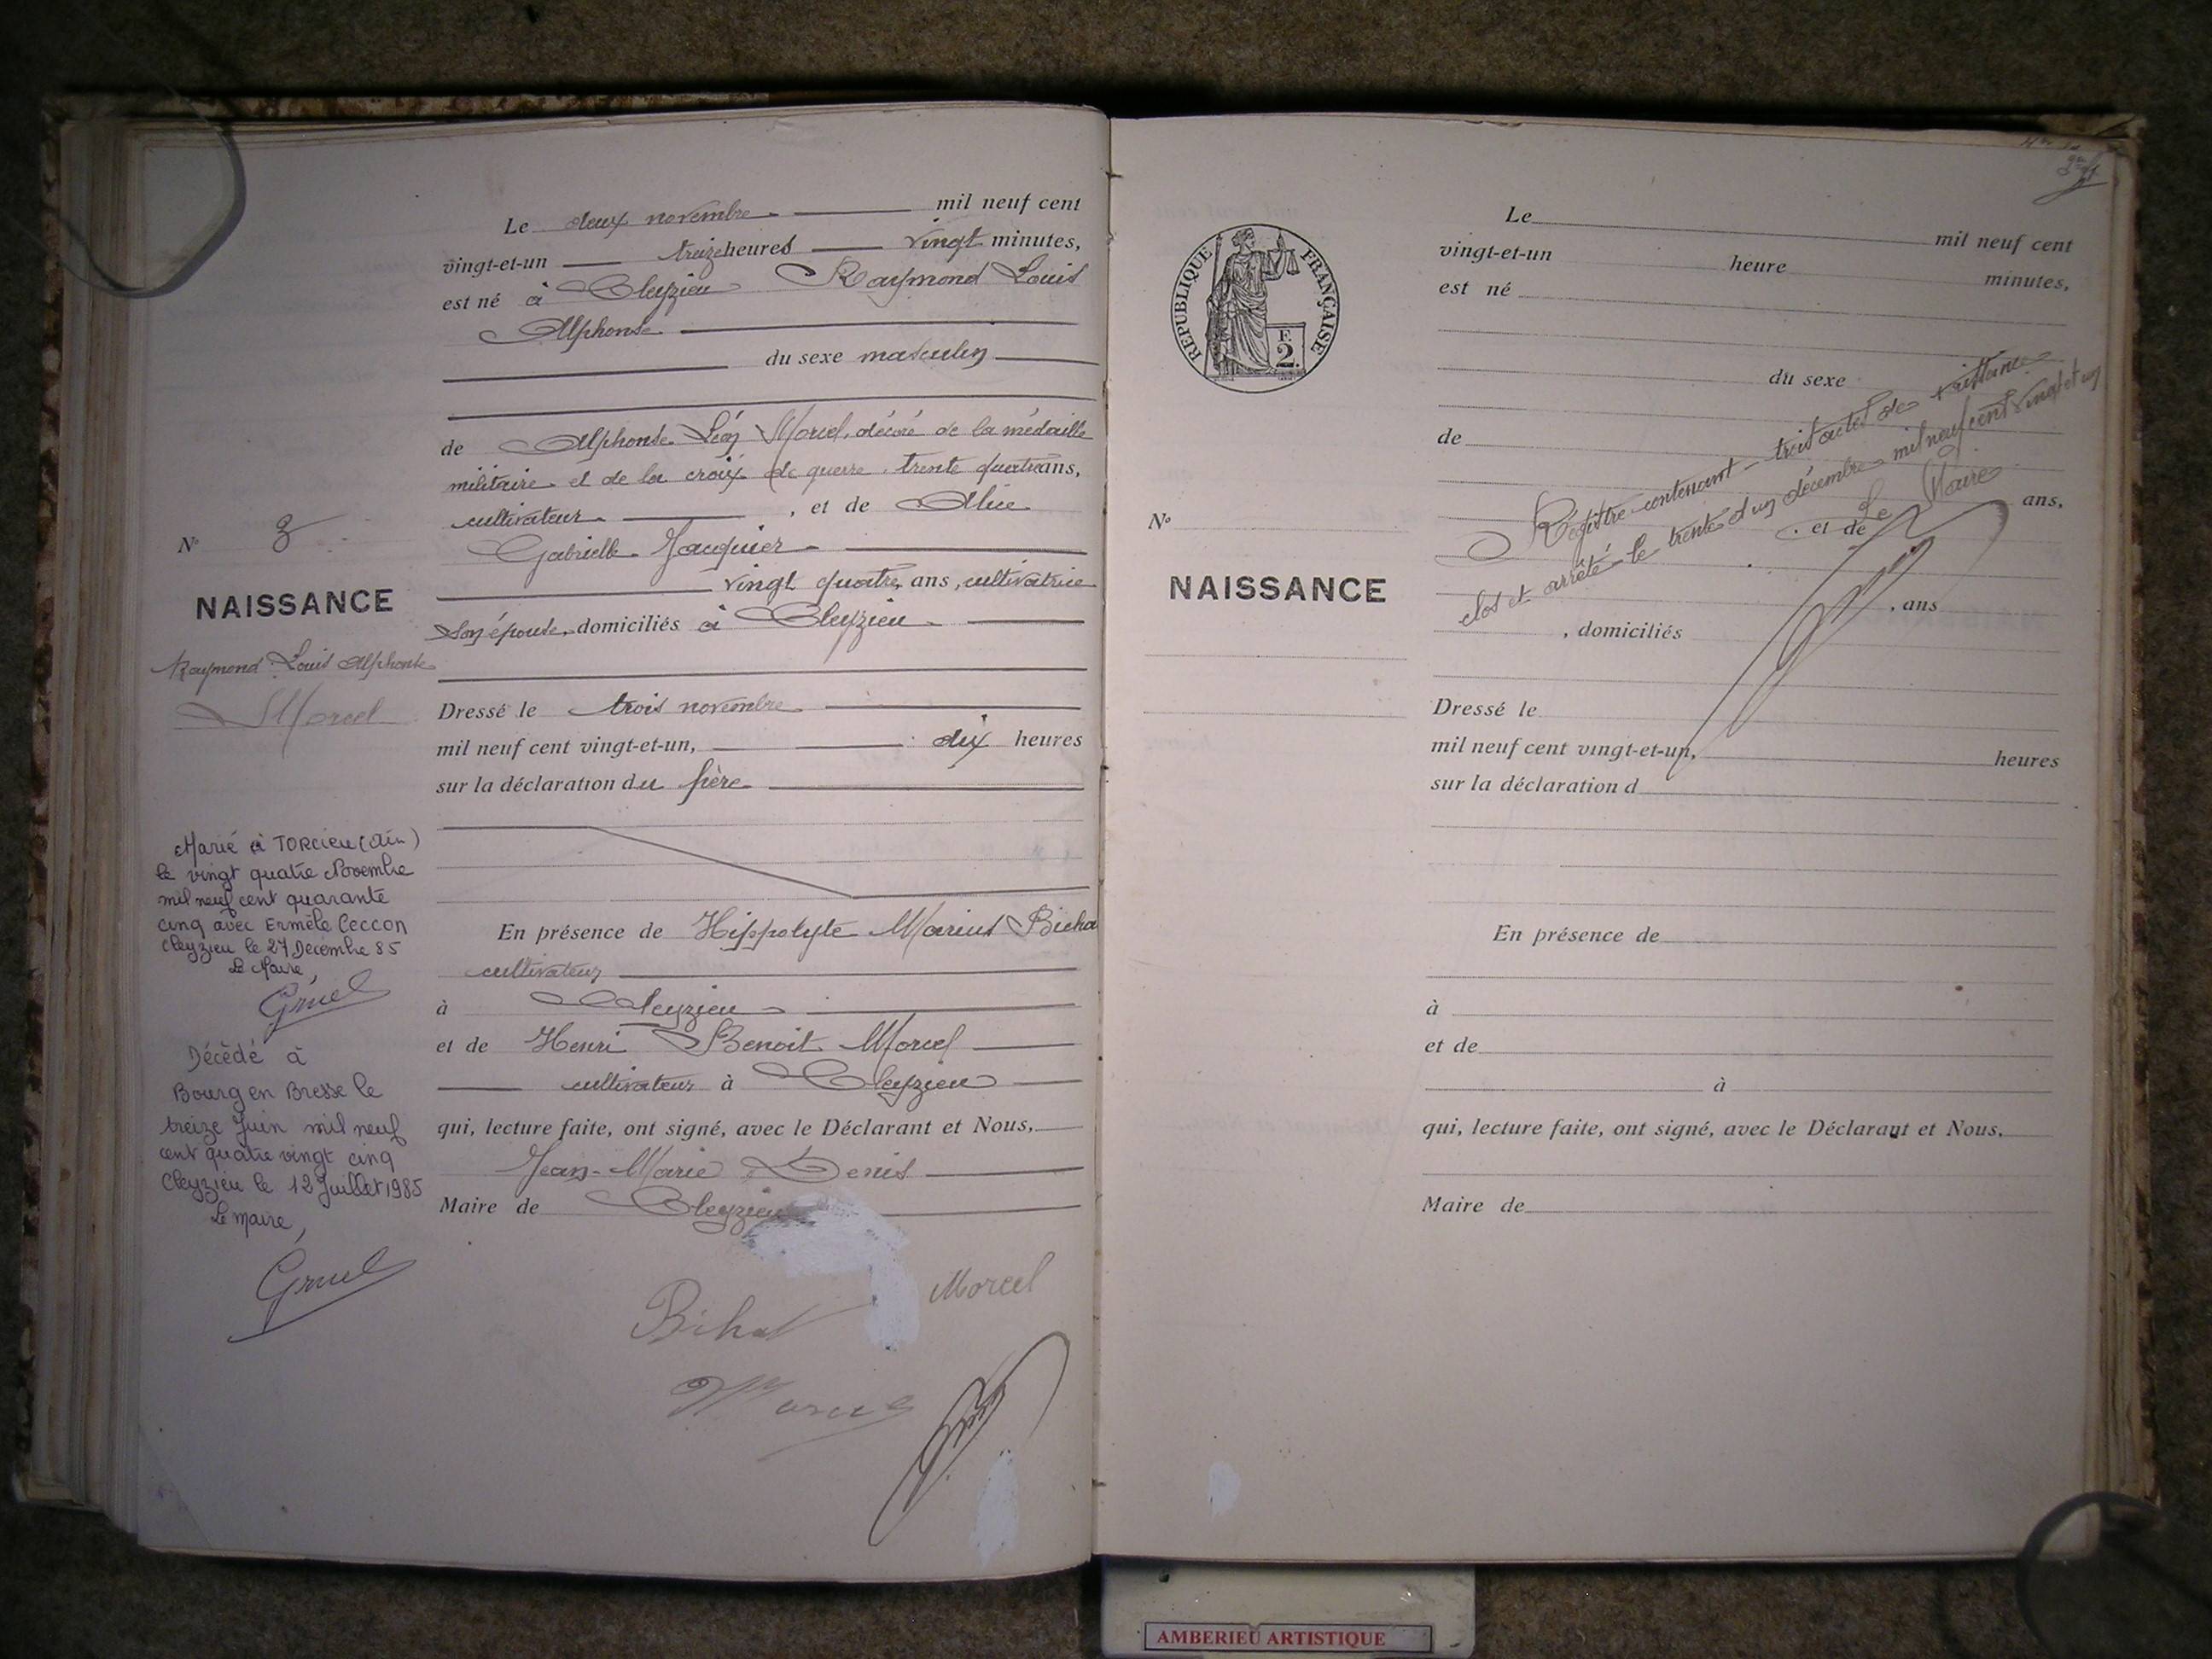 Le deux novembre mil neuf cent
vingt-et-un treize heures vingt minutes,
est né à Cleyzieu Raymond Louis
Alphonse
du sexe masculin
de Alphonse Léon Morcel, décoré de la médaille
militaire et de la croix de guerre, trente quatre ans,
cultivateur, et de Alice
Gabrielle Jacquier
vingt quatre ans, cultivatrice
son épouse, domiciliés à Cleyzieu
Dressé le trois novembre
mil neuf cent vingt-et-un, dix heures
sur la déclaration du père
En présence de Hippolyte Marius
cultivateur
à Cleyzieu
et de Henri Benoit Morcel
cultivateur à Cleyzieu
qui, lecture faite, ont signé, avec le Déclarant et Nous,
Jean-Marie Denis
Maire de Cleyzieu
Morcel
Bihat
N° 3
NAISSANCE
Raymond Louis Alphonse
Morcel
Marié à TORCIEU (Ain)
le vingt quatre Novembre
mil neuf cent quarante
cinq avec Ermèle CECCON
Cleyzieu le 27 Décembre 85
Le Maire,
Gruel
Décédé à
Bourg en Bresse le
treize Juin mil neuf
cent quatre vingt cinq
Cleyzieu le 12 Juillet 1985
Le Maire,
Gruel
REPUBLIQUE FRANÇAISE
F.
2.
N°
NAISSANCE
Le mil neuf cent
vingt-et-un heure minutes,
est né
du sexe
de
ans,
, et de
, ans
, domiciliés
Registre contenant trois actes de
clos et arrêté le trente et un décembre mil neuf cent vingt et un
Le Maire
Dressé le
mil neuf cent vingt-et-un, heures
sur la déclaration d
En présence de
à
et de
à
qui, lecture faite, ont signé, avec le Déclarant et Nous,
Maire de
AMBERIEU ARTISTIQUE